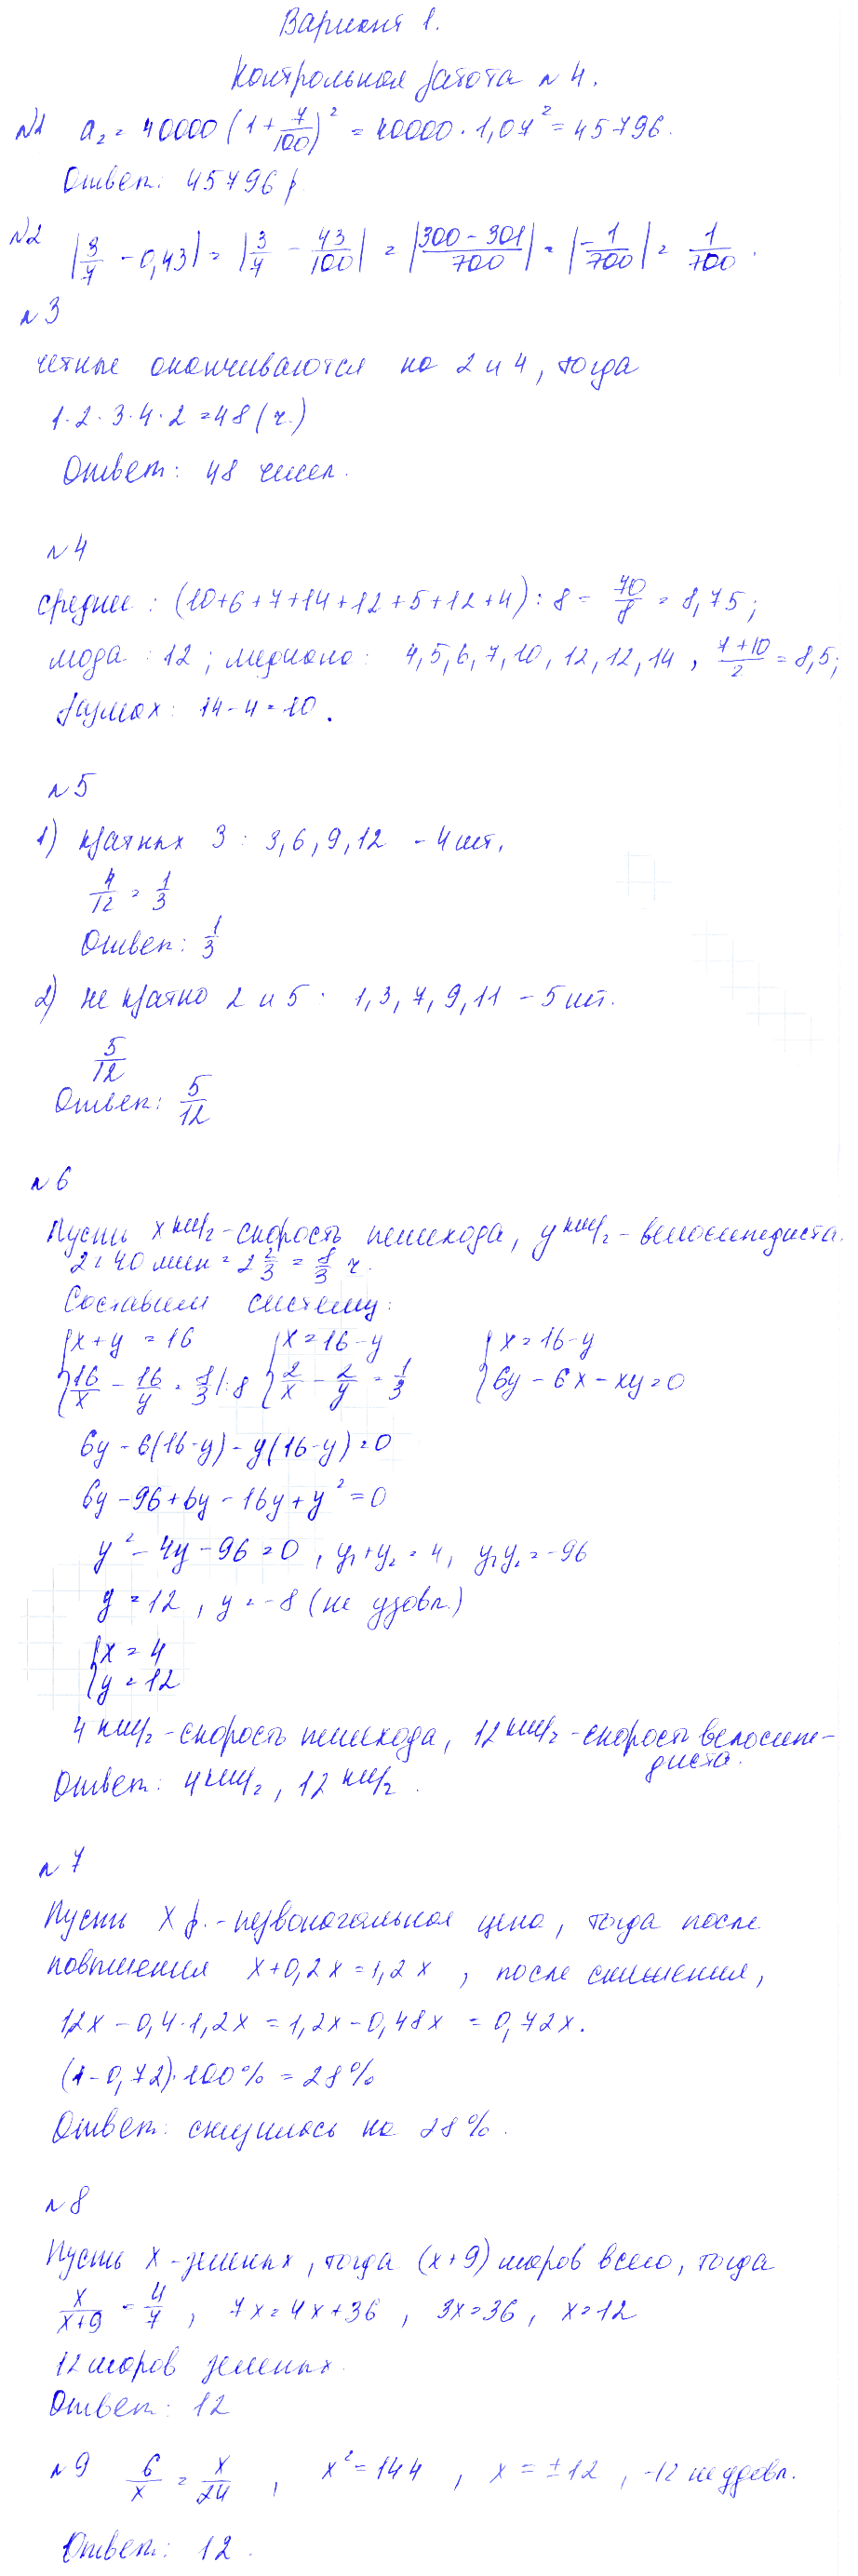 Вариант 1.
Контрольная работа №4.
№1 a₂ = 40000 (1 + 7/100)² = 40000 · 1,07² = 45796.
Ответ: 45796 р.
№2 |3/7 - 0,43| = |3/7 - 43/100| = |(300 - 301)/700| = |-1/700| = 1/700.
№3
четные оканчиваются на 2 и 4, тогда
1·2·3·4·2 = 48 (ч.)
Ответ: 48 чисел.
№4
среднее: (10+6+7+14+12+5+12+4) : 8 = 70/8 = 8,75;
мода: 12; медиана: 4, 5, 6, 7, 10, 12, 12, 14, (7+10)/2 = 8,5;
размах: 14 - 4 = 10.
№5
1) кратных 3: 3, 6, 9, 12 - 4 шт.
4/12 = 1/3
Ответ: 1/3
2) не кратно 2 и 5: 1, 3, 7, 9, 11 - 5 шт.
5/12
Ответ: 5/12
№6
Пусть x км/ч - скорость пешехода, y км/ч - велосипедиста.
2ч 40 мин = 2 2/3 = 8/3 ч.
Составим систему:
{x + y = 16 {x = 16 - y {x = 16 - y
{16/x - 16/y = 8/3 |:8 {2/x - 2/y = 1/3 {6y - 6x - xy = 0
6y - 6(16 - y) - y(16 - y) = 0
6y - 96 + 6y - 16y + y² = 0
y² - 4y - 96 = 0, y₁ + y₂ = 4, y₁y₂ = -96
y = 12, y = -8 (не удовл.)
{x = 4
{y = 12
4 км/ч - скорость пешехода, 12 км/ч - скорость велосипе-
диста.
Ответ: 4 км/ч, 12 км/ч.
№7
Пусть x р. - первоначальная цена, тогда после
повышения x + 0,2x = 1,2x, после снижения,
1,2x - 0,4·1,2x = 1,2x - 0,48x = 0,72x.
(1 - 0,72)·100% = 28%
Ответ: снизилась на 28%.
№8
Пусть x - зеленых, тогда (x+9) шаров всего, тогда
x/(x+9) = 4/7, 7x = 4x + 36, 3x = 36, x = 12
12 шаров зеленых.
Ответ: 12
№9 6/x = x/24, x² = 144, x = ±12, -12 не удовл.
Ответ: 12.